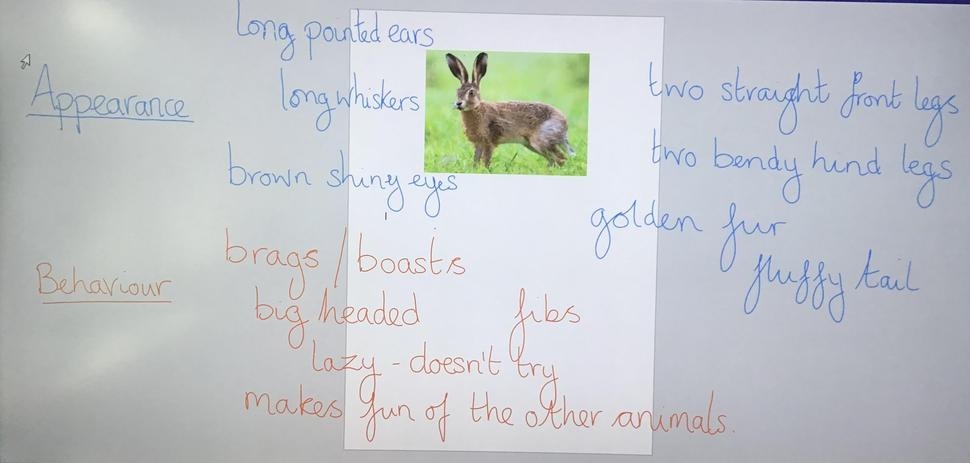 Appearance
long pointed ears
long whiskers
brown shiny eyes
two straight front legs
two bendy hind legs
golden fur
fluffy tail
Behaviour
brags / boasts
big headed
fibs
lazy - doesn't try
makes fun of the other animals.